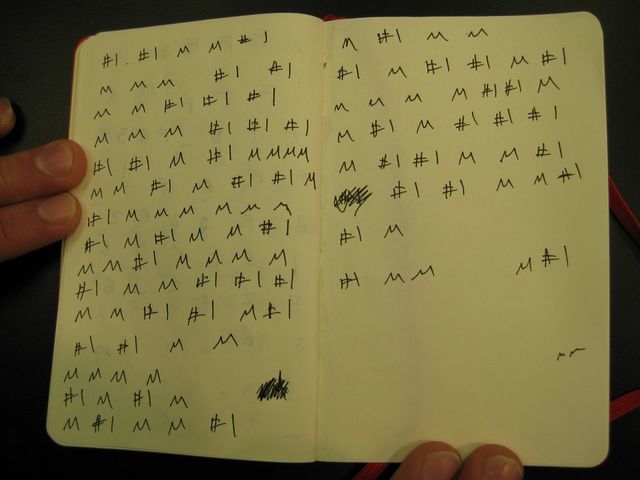 #1 #1 M M #1
M M M #1 #1
M M #1 #1 #1
M M M #1 #1 #1
#1 #1 M #1 M M M M
M M #1 M #1 #1 M
#1 M M M M M M
#1 M #1 M M #1
M M #1 M M M M
#1 M M #1 #1 #1
M M #1 #1 M #1
#1 #1 M M
M M M M
#1 M #1 M
M #1 M M #1
M #1 M M
#1 M #1 #1 M #1
M M M M #1 #1 M
M #1 M #1 #1 #1
M #1 #1 M M #1
#1 #1 M M #1
#1 M
#1 M M M #1
M M